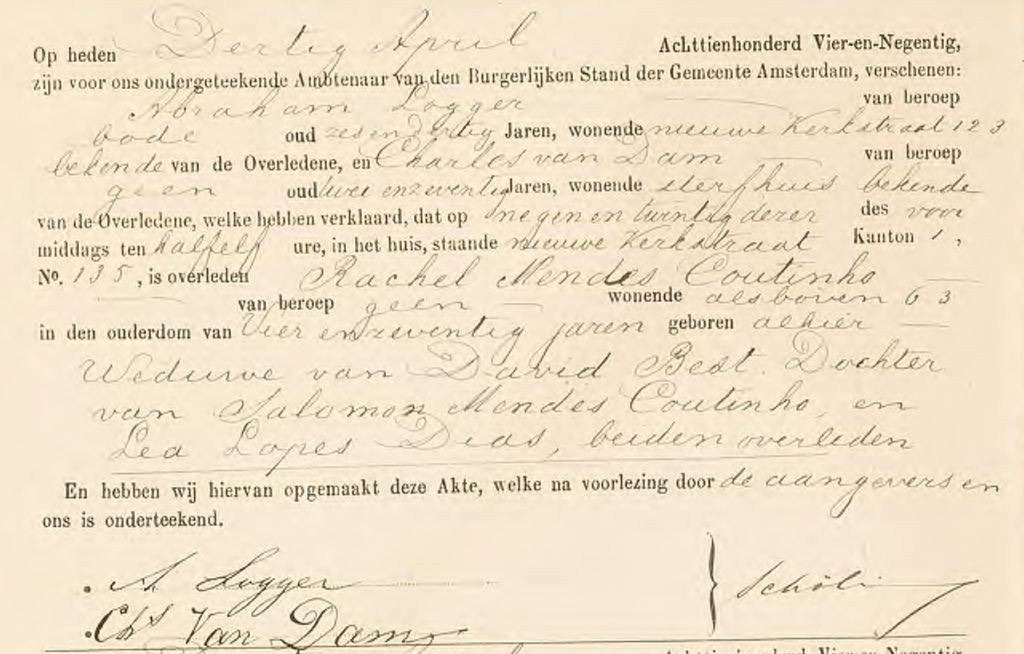 Op heden Dertig April Achttienhonderd Vier-en-Negentig,
zijn voor ons ondergeteekende Ambtenaar van den Burgerlijken Stand der Gemeente Amsterdam, verschenen:
Abraham Logger van beroep
bode oud zesendertig Jaren, wonende nieuwe Kerkstraat 123
bekende van de Overledene, en Charles van Dam van beroep
geen oud twee enzeventig Jaren, wonende sterfhuis bekende
van de Overledene, welke hebben verklaard, dat op negen en twintig dezer des voor
middags ten halfelf ure, in het huis, staande nieuwe Kerkstraat Kanton 1,
No. 135, is overleden Rachel Mendes Coutinho
van beroep geen wonende alsboven 63
in den ouderdom van Vier enzeventig jaren geboren alhier
Weduwe van David Best. Dochter
van Salomon Mendes Coutinho, en
Lea Lopes Dias, beiden overleden
En hebben wij hiervan opgemaakt deze Akte, welke na voorlezing door de aangevers en
ons is onderteekend.
A. Logger
Chs Van Dam